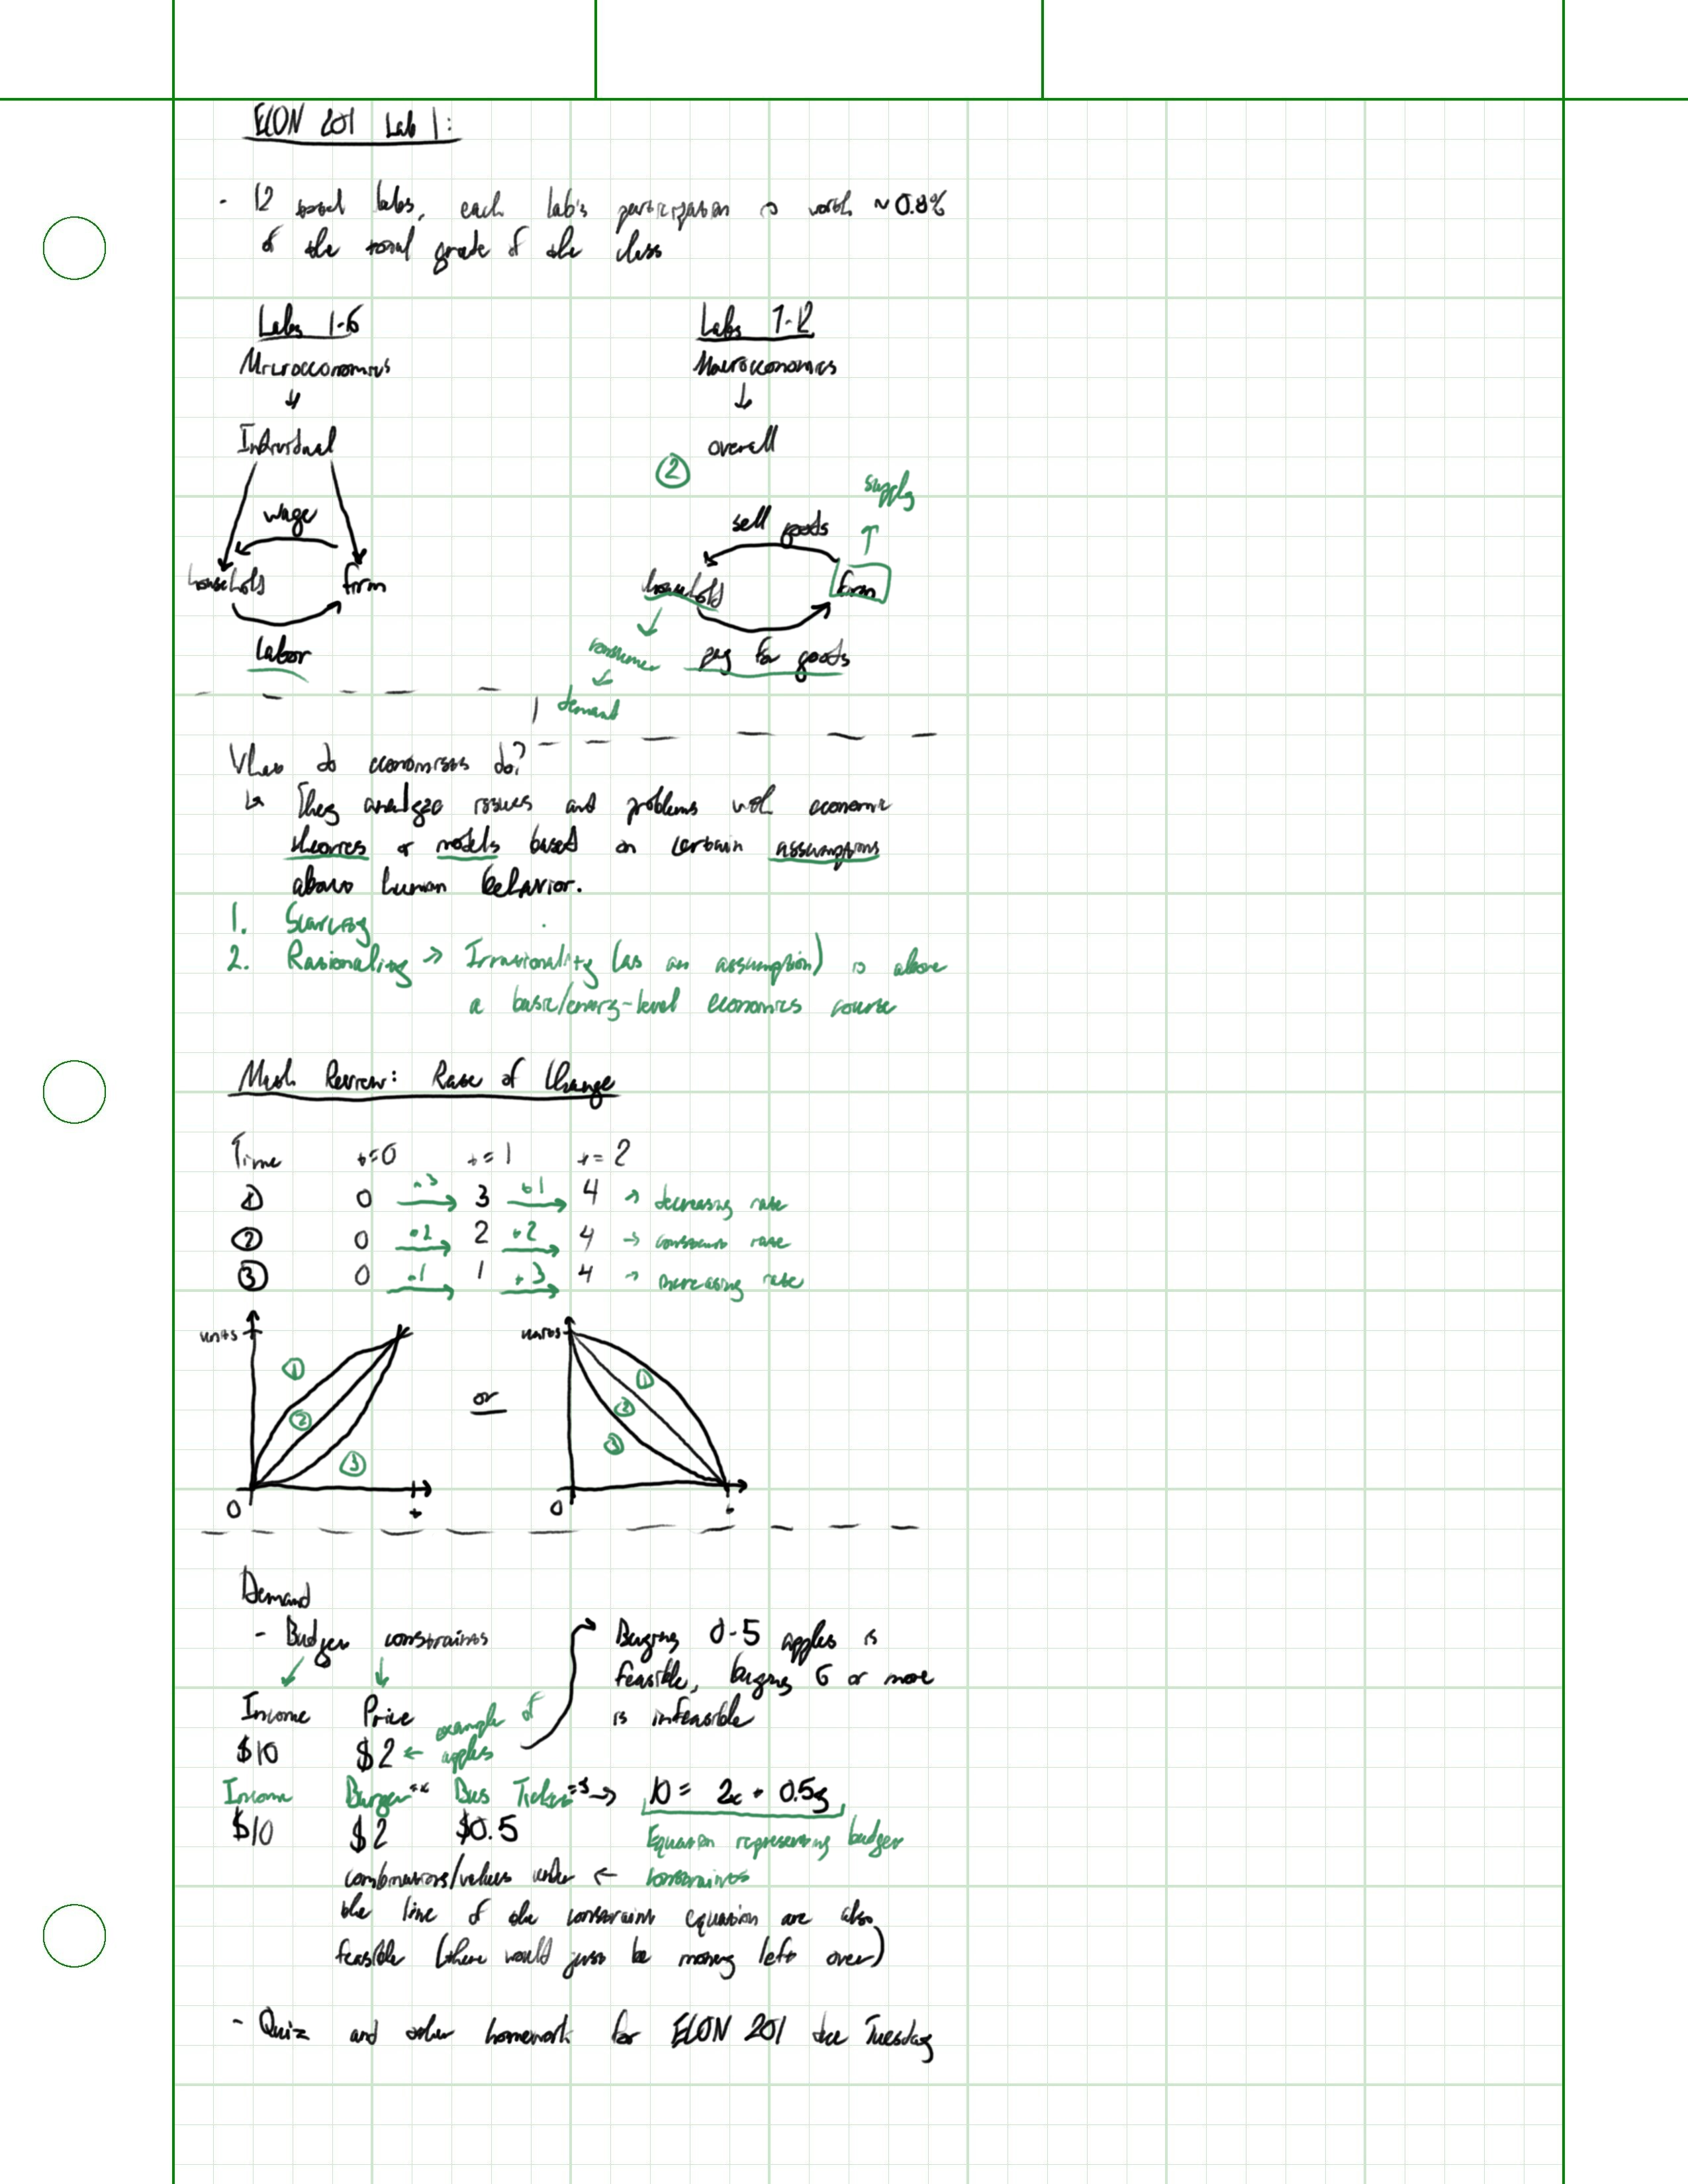 ECON 201 Lab 1:
- 12 total labs, each lab's participation is worth ~0.8%
of the total grade of the class
Labs 1-6
Microeconomics
↓
Individual
wage
household firm
Labor
Labs 7-12
Macroeconomics
↓
overall
②
supply
↑
sell goods
household firm
pay for goods
↓
consumer
↓
demand
What do economists do?
↳ They analyze issues and problems with economic
theories or models based on certain assumptions
about human behavior.
1. Scarcity
2. Rationality → Irrationality (as an assumption) is above
a basic/entry-level economics course
Math Review: Rate of Change
Time t=0 t=1 t=2
① 0 +3 3 +1 4 → decreasing rate
② 0 +2 2 +2 4 → constant rate
③ 0 +1 1 +3 4 → increasing rate
units
①
②
③
0 t
or
units
①
②
③
0 t
Demand
- Budget constraints
↓ ↓
Income Price
$10 $2 ← example of
apples
Buying 0-5 apples is
feasible, buying 6 or more
is infeasible
Income Burger=x Bus Ticket=y → 10 = 2x + 0.5y
$10 $2 $0.5
Equation representing budget
constraints
combinations/values under ←
the line of the constraint equation are also
feasible (there would just be money left over)
- Quiz and other homework for ECON 201 due Tuesday